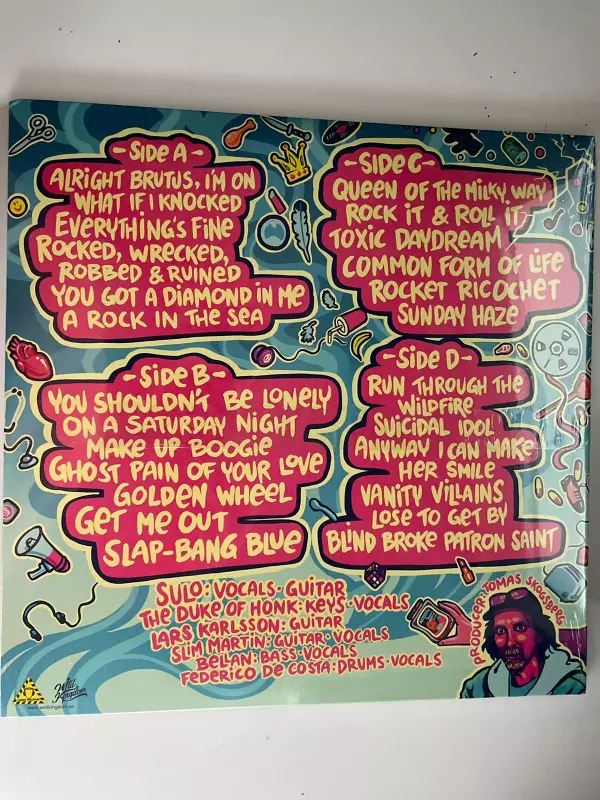 -SIDE A-
ALRIGHT BRUTUS, I'M ON
WHAT IF I KNOCKED
EVERYTHING'S FINE
ROCKED, WRECKED,
ROBBED & RUINED
YOU GOT A DIAMOND IN ME
A ROCK IN THE SEA
-SIDE B-
YOU SHOULDN'T BE LONELY
ON A SATURDAY NIGHT
MAKE UP BOOGIE
GHOST PAIN OF YOUR LOVE
GOLDEN WHEEL
GET ME OUT
SLAP-BANG BLUE
-SIDE C-
QUEEN OF THE MILKY WAY
ROCK IT & ROLL IT
TOXIC DAYDREAM
COMMON FORM OF LIFE
ROCKET RICOCHET
SUNDAY HAZE
-SIDE D-
RUN THROUGH THE
WILDFIRE
SUICIDAL IDOL
ANYWAY I CAN MAKE
HER SMILE
VANITY VILLAINS
LOSE TO GET BY
BLIND BROKE PATRON SAINT
SULO: VOCALS · GUITAR
THE DUKE OF HONK: KEYS · VOCALS
LARS KARLSSON: GUITAR
SLIM MARTIN: GUITAR · VOCALS
BELLAN: BASS · VOCALS
FEDERICO DE COSTA: DRUMS · VOCALS
PRODUCER: TOMAS SKOGSBERG
Wild Kingdom
www.wildkingdom.se